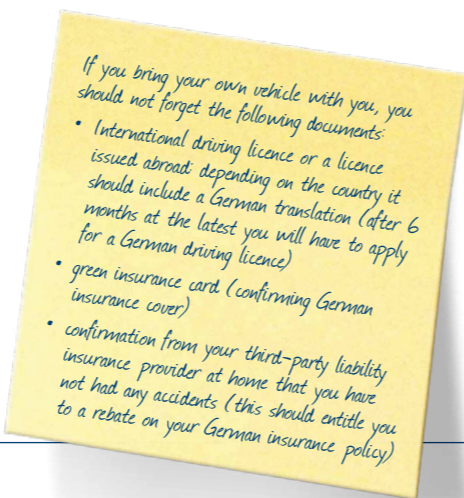 If you bring your own vehicle with you, you
should not forget the following documents:
• International driving licence or a licence
issued abroad: depending on the country it
should include a German translation (after 6
months at the latest you will have to apply
for a German driving licence)
• green insurance card (confirming German
insurance cover)
• confirmation from your third-party liability
insurance provider at home that you have
not had any accidents (this should entitle you
to a rebate on your German insurance policy)